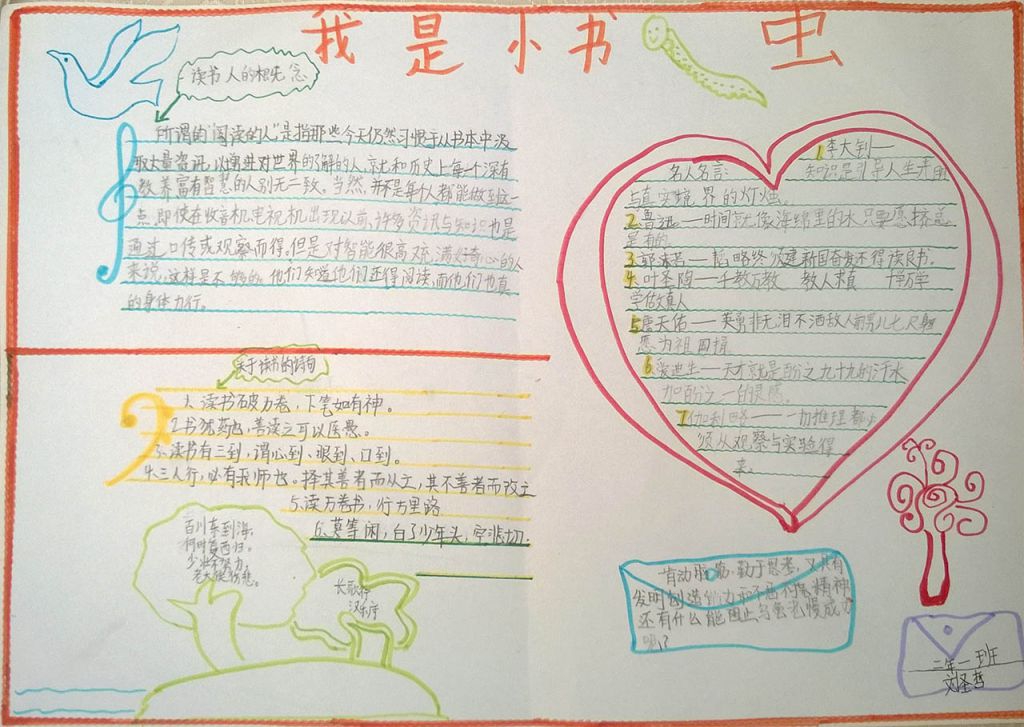 我是小书虫
读书人的相关念
所谓的"阅读的人"是指那些今天仍然习惯于从书本中汲
取大量资讯,以增进对世界的了解的人,就和历史上每一个深有
教养富有智慧的人别无二致。当然,并不是每个人都能做到这一
点,即使在收音机、电视机出现以前,许多资讯与知识也是
通过口传或观察而得。但是对智能很高充满好奇心的人
来说,这样是不够的。他们知道他们还得阅读,而他们也真
的身体力行。
名人名言:
1李大钊——
知识是引导人生来到
与真实境界的灯烛。
2.鲁迅——时间就像海绵里的水只要愿挤总
是有的。
3.郭沫若——韬略终须建新国奋发不得读良书.
4.叶圣陶——千教万教 教人求真
学做真人
5唐天佑——英勇非无泪不洒敌人前男儿七尺躯
愿为祖国捐
6.爱迪生——天才就是百分之九十九的汗水
加百分之一的灵感。
7伽利略——一切推理都必
须从观察与实验得
来。
关于读书的诗句
1.读书破万卷,下笔如有神。
2书犹药也,善读之可以医愚。
3.读书有三到,谓心到、眼到、口到。
4.三人行,必有我师也。择其善者而从之,其不善者而改之
5.读万卷书,行万里路
6.莫等闲,白了少年头,空悲切.
百川东到海,
何时复西归。
少壮不努力,
老大徒伤悲。
长歌行
汉乐府
肯动脑筋,勤于思考,又具有
发明创造能力和不屈不挠精神
还有什么能阻止乌龟也慢成功
呢?
二年一班
刘圣哲